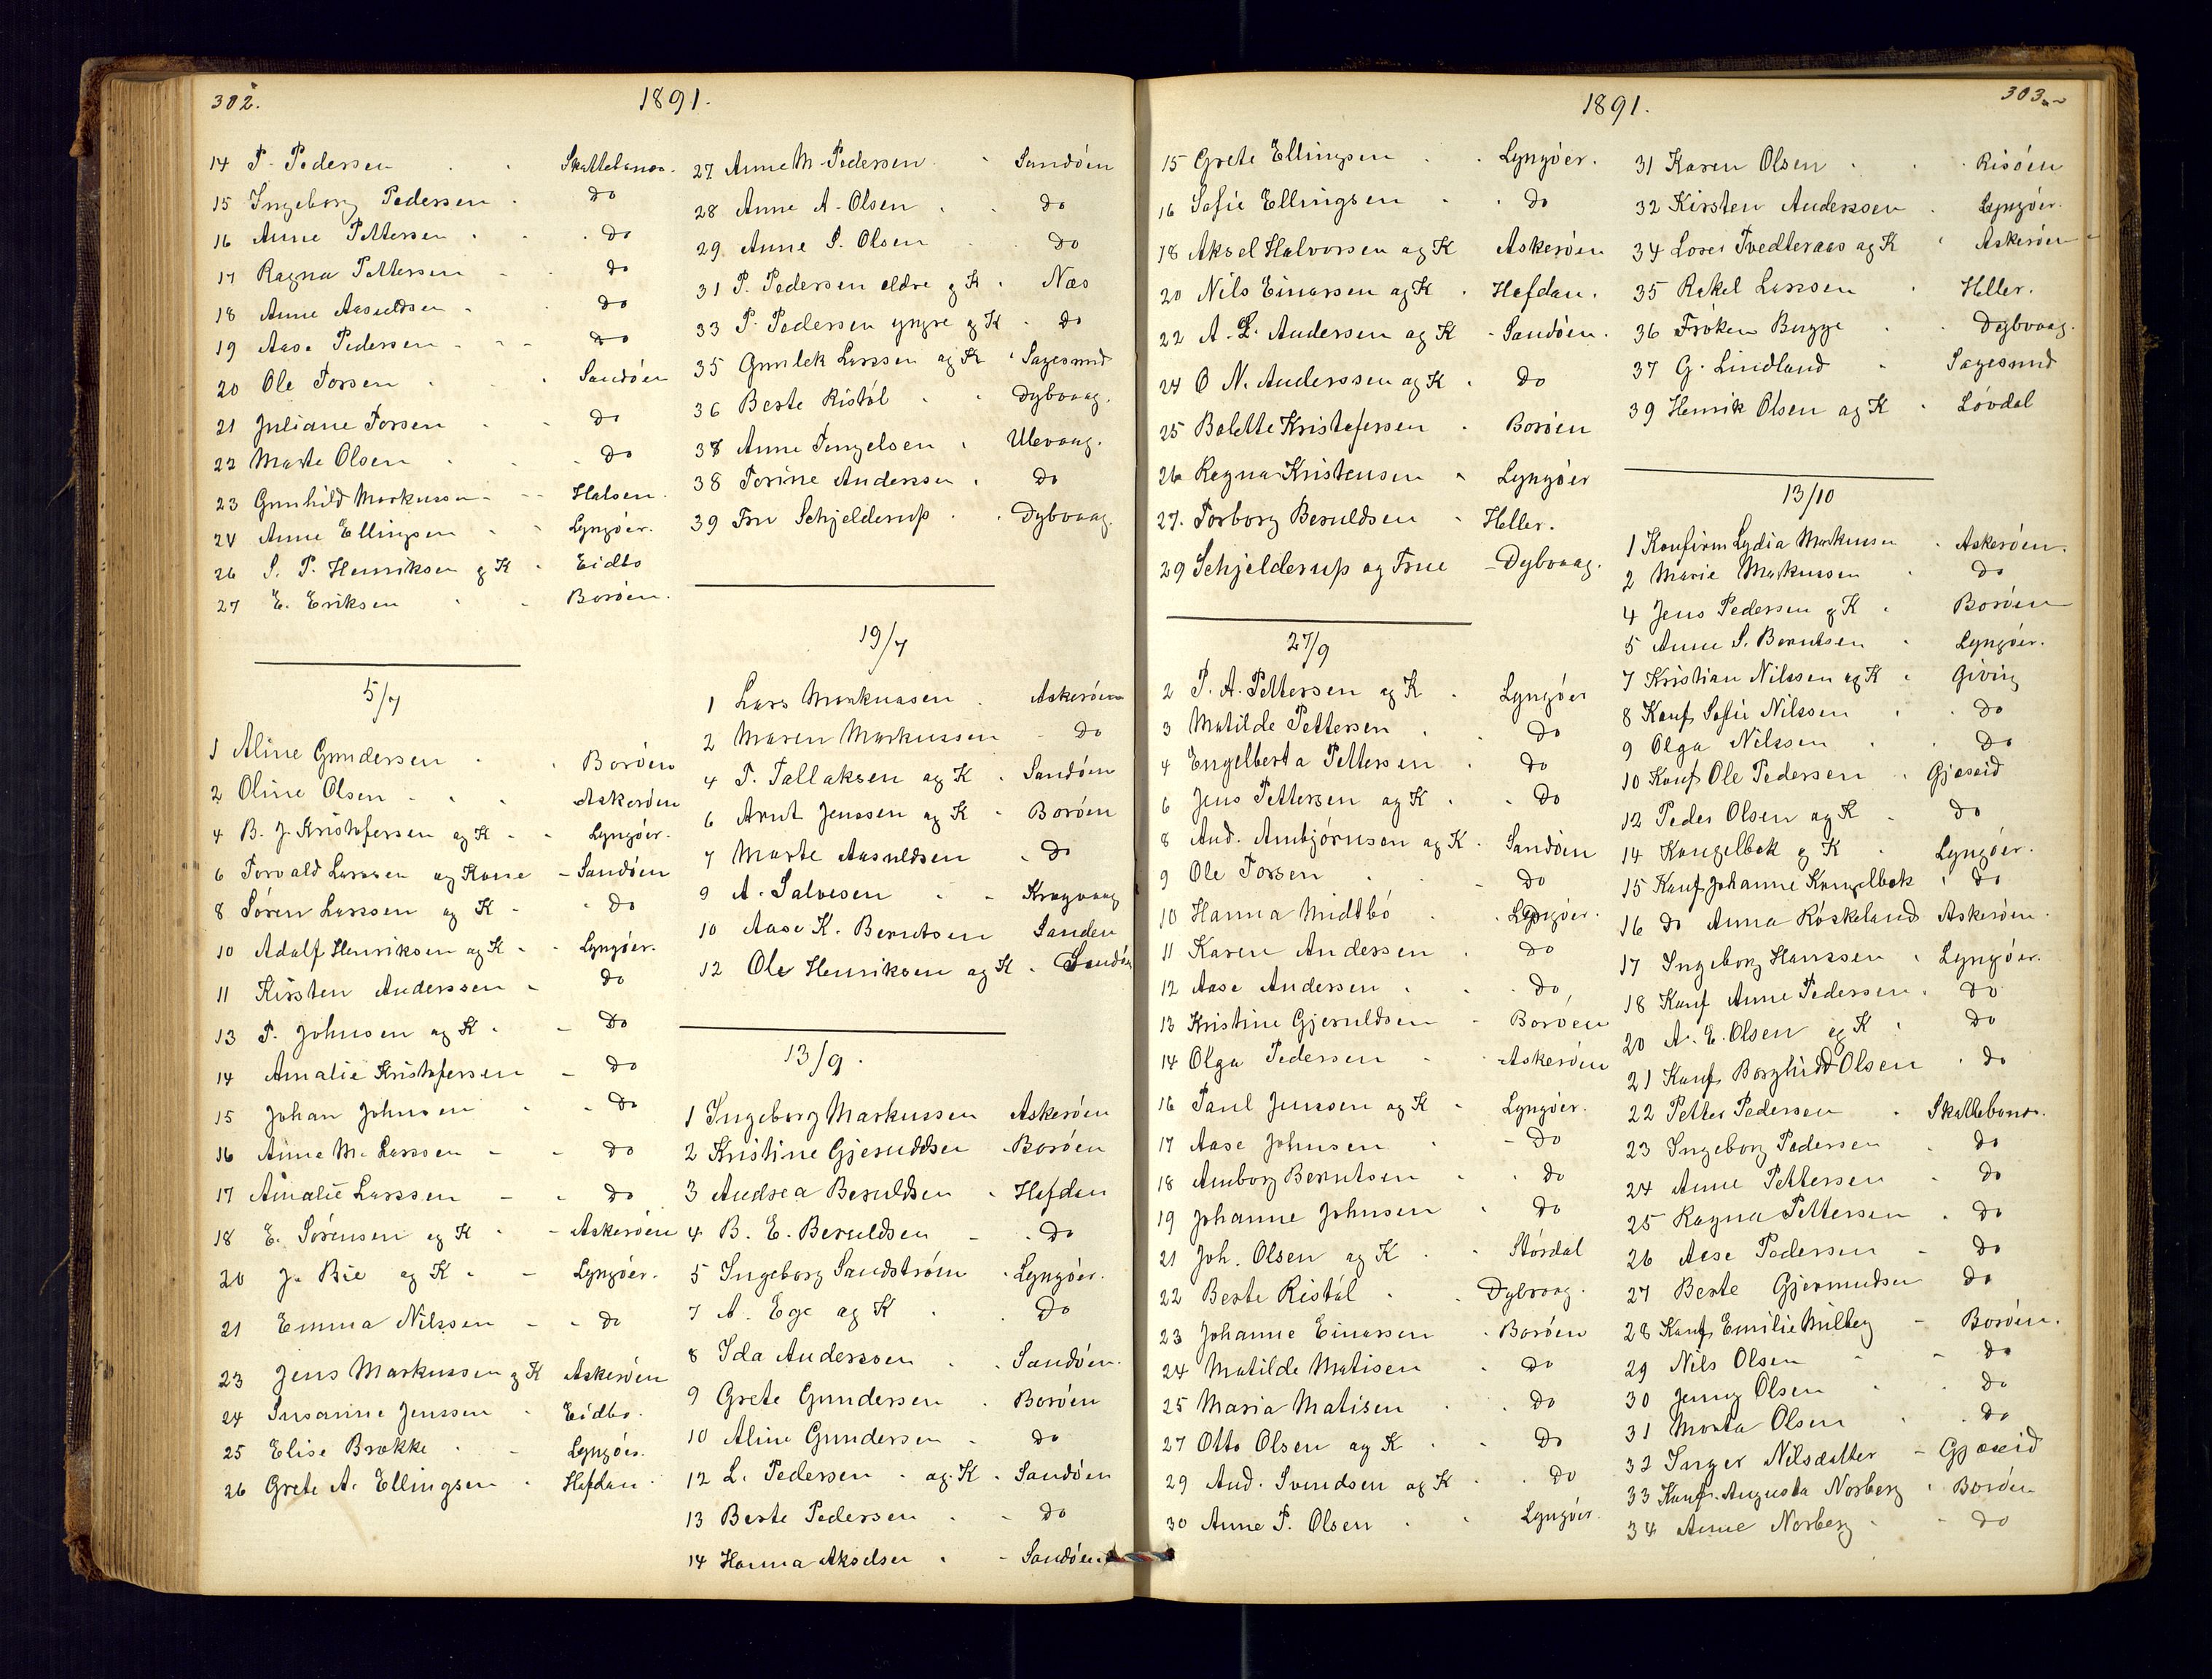 302.
1891.
14 P. Pedersen Skattebonæs.
15 Ingeborg Pedersen do
16 Anne Pettersen do
17 Ragna Pettersen do
18 Anne Aasuldsen do
19 Aase Pedersen do
20 Ole Torsen Sandøen
21 Juliane Torsen do
22 Marte Olsen do
23 Gunhild Markussen Halsen.
24 Anne Ellingsen Lyngøer.
26 S. P. Henriksen og K Eidbo
27 E. Eriksen Borøen.
5/7
1 Aline Gundersen Borøen
2 Oline Olsen Askerøen
4 B. J. Kristofersen og K Lyngøer.
6 Torvald Larssen og Kone Sandøen
8 Søren Larssen og K do
10 Adolf Henriksen og K Lyngøer.
11 Kirsten Anderssen do
13 P. Johnsen og K do
14 Amalie Kristofersen do
15 Johan Johnsen do
16 Anne M. Larssen do
17 Amalie Larssen do
18 E. Sørensen og K Askerøen
20 J. Bie og K Lyngøer.
21 Emma Nilssen do
23 Jens Markussen og K Askerøen
24 Susanne Jenssen Eidbo.
25 Elise Brække Lyngøer.
26 Grete A. Ellingsen Hefdan.
27 Anne M. Pedersen Sandøen
28 Anne A. Olsen do
29 Anne S. Olsen do
31 P. Pedersen eldre og K Næs
33 P. Pedersen yngre og K do
35 Gunlek Larssen og K Sagesund
36 Berte Ristøl Dybvaag.
37 Anne Tengelsen Ulevaag.
38 Torine Anderssen do
39 Fru Schjelderup Dybvaag.
19/7
1 Lars Markussen Askerøen
2 Maren Markussen do
4 T. Tallaksen og K Sandøen
6 Arnt Jenssen og K Borøen
7 Marte Aasuldsen do
9 A. Salvesen Kragvaag
10 Aase K. Berntsen Sanden
12 Ole Henriksen og K Sandøen
13/9.
1 Ingeborg Markussen Askerøen
2 Kristine Gjeruldsen Borøen
3 Andrea Beruldsen Hefdan
4 B. E. Beruldsen do
5 Ingeborg Sandstrøm Lyngøer.
7 A. Ege og K do
8 Ida Anderssen Sandøen.
9 Grete Gundersen Borøen
10 Aline Gundersen do
12 L. Pedersen og K Sandøen
13 Berte Pedersen do
14 Hanna Akselsen Sandøen
1891.
303.
15 Grete Ellingsen Lyngøer.
16 Sofie Ellingsen do
18 Aksel Halvorsen og K Askerøen
20 Nils Einarsen og K Hefdan.
22 A. L. Andersen og K Sandøen.
24 O N. Anderssen og K do
25 Bolette Kristofersen Borøen
26 Ragna Kristensen Lyngøer
27. Torborg Beruldsen Heller.
29 Schjelderup og Frue Dybvaag.
27/9
2 P. A. Pettersen og K Lyngøer
3 Matilde Pettersen do
4 Engelberta Pettersen do
6 Jens Pettersen og K do
8 And. Ambjørnsen og K. Sandøen
9 Ole Torsen do
10 Hanna Midtbø Lyngøer.
11 Karen Andersen do
12 Aase Andersen do
13 Kristine Gjeruldsen Borøen
14 Olga Pedersen Askerøen
16 Paul Jenssen og K Lyngøer.
17 Aase Johnsen do
18 Amborg Berntsen do
19 Johanne Johnsen do
21 Joh. Olsen og K Størdal
22 Berte Ristøl Dybvaag.
23 Johanne Einarsen Borøen
24 Matilde Matisen do
25 Maria Matisen do
27 Otto Olsen og K do
29 And. Svendsen og K do
30 Anne P. Olsen Lyngøer.
31 Karen Olsen Risøen
32 Kirsten Anderssen Lyngøer.
34 Tvedteraas og K Askerøen
35 Rakel Larssen Heller.
36 Frøken Bugge Dybvaag.
37 G. Lindland Sagesund
39 Henrik Olsen og K Løvdal
13/10
1 Konfirm Lydia Markussen Askerøen.
2 Marie Markussen do
4 Jens Pedersen og K Borøen
5 Anne S. Berntsen Lyngøer.
7 Kristian Nilssen og K Giving
8 Konf. Sofie Nilssen do
9 Olga Nilssen do
10 Konf Ole Pedersen Gjæseid
12 Peder Olsen og K do
14 Kongelbek og K Lyngøer.
15 Konf Johanne Kongelbek do
16 do Anna Røskeland Askerøen.
17 Ingeborg Hanssen Lyngøer.
18 Konf Anne Pedersen do
20 A. E. Olsen og K do
21 Konf. Borghild Olsen do
22 Petter Pedersen Skattebonæs.
23 Ingeborg Pedersen do
24 Anne Pettersen do
25 Ragna Pettersen do
26 Aase Pedersen do
27 Berte Gjermundsen do
28 Konf. Emilie Milberg Borøen.
29 Nils Olsen do
30 Jenny Olsen do
31 Morta Olsen do
32 Inger Nilsdatter Gjæseid
33 Konf. Augusta Norberg Borøen
34 Anne Norberg do